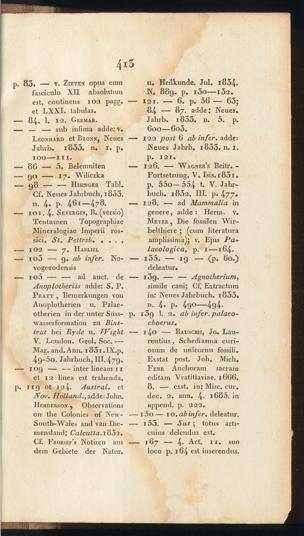 413
p. 83. — v. ZIETEN opus cum
fasciculo XII absolutum
est, continens 102 pagg.
et LXXI. tabulas.
— 84. l. 12. GERMAR.
— — — sub infima adde: v.
LEONHARD et BRONN, Neues
Jahrb. 1833. n. 1. p.
100—111.
— 86 — 5. Belemniten
— 90 — 17. Wiliczka
— 98 — — HISINGER Tabl.
Cf. Neues Jahrbuch, 1833.
n. 4. p. 461—478.
— 101. 4. SEVERGIN, B. (versio)
Tentamen Topographiae
Mineralogiae Imperii ros-
sici, St. Petrob. . . . .
— 102 — 7. HARLES.
— 103 — 9. ab infer. No-
vogorodensis
— 105 — — ad auct. de
Anoplotheriis adde: S. P.
PRATT, Bemerkungen von
Anoplotherien u. Palae-
otherien in der unter Süss-
wasserformation zu Bins-
tead bei Ryde u. Wight
V. London. Geol. Soc. —
Mag. and. Ann. 1831. IX. p.
49-50. Jahrbuch, III. 479.
— 109 — — inter lineam 11
et 12 linea est trahenda.
p. 119 et 124. Austral. et
Nov. Holland., adde: John.
HENDERSON, Observations
on the Colonies of New-
South-Wales and van Die-
mensland; Calcutta. 1832.
Cf. FRORIEP's Notizen aus
dem Gebiete der Natur.
u. Heilkunde. Jul. 1834.
N. 889. p. 130—132.
— 121. — 6. p. 56 — 63;
84 — 87. adde: Neues.
Jahrb. 1833. n. 5. p.
600—603.
— 122 post 6 ab infer. adde:
Neues Jahrb. 1833. n. 1.
p. 121.
— 126. — WAGNER's Beitr. -
Fortsetzung. V. Isis. 1831.
p. 550—554 t. V. Jahr-
buch. 1832. III. p. 477.
— 128. — ad Mammalia in
genere, adde: Herm. v.
MEYER, Die fossilen Wir-
belthiere; (cum literatura
amplissima); v. Ejus Pa-
laeologica, p. 1—164.
— 135. — 19 — (p. 60.)
deleatur.
— 139. — — Agnotherium,
simile cani; Cf. Extractum
in: Neues Jahrbuch, 1833.
n. 4. p. 490—494.
p. 139 l. 2. ab infer. palaeo-
choerus.
— 140 — BAUSCHI, Jo. Lau-
rentius, Schediasma curi-
osum de unicornu fossili.
Exstat post. Joh. Mich.
FEHR Anchoram sacram
editam Vratitlaviae. 1666.
8. — exst. in: Misc. cur.
dec. 2. ann. 4. 1685. in
append. p. 222.
— 150 — 10. ab infer. deleatur.
— 153. — Sus; totus arti-
cuius delendus est.
— 167 — 4. Act. 11. suo
loco p. 164 est inserendus.